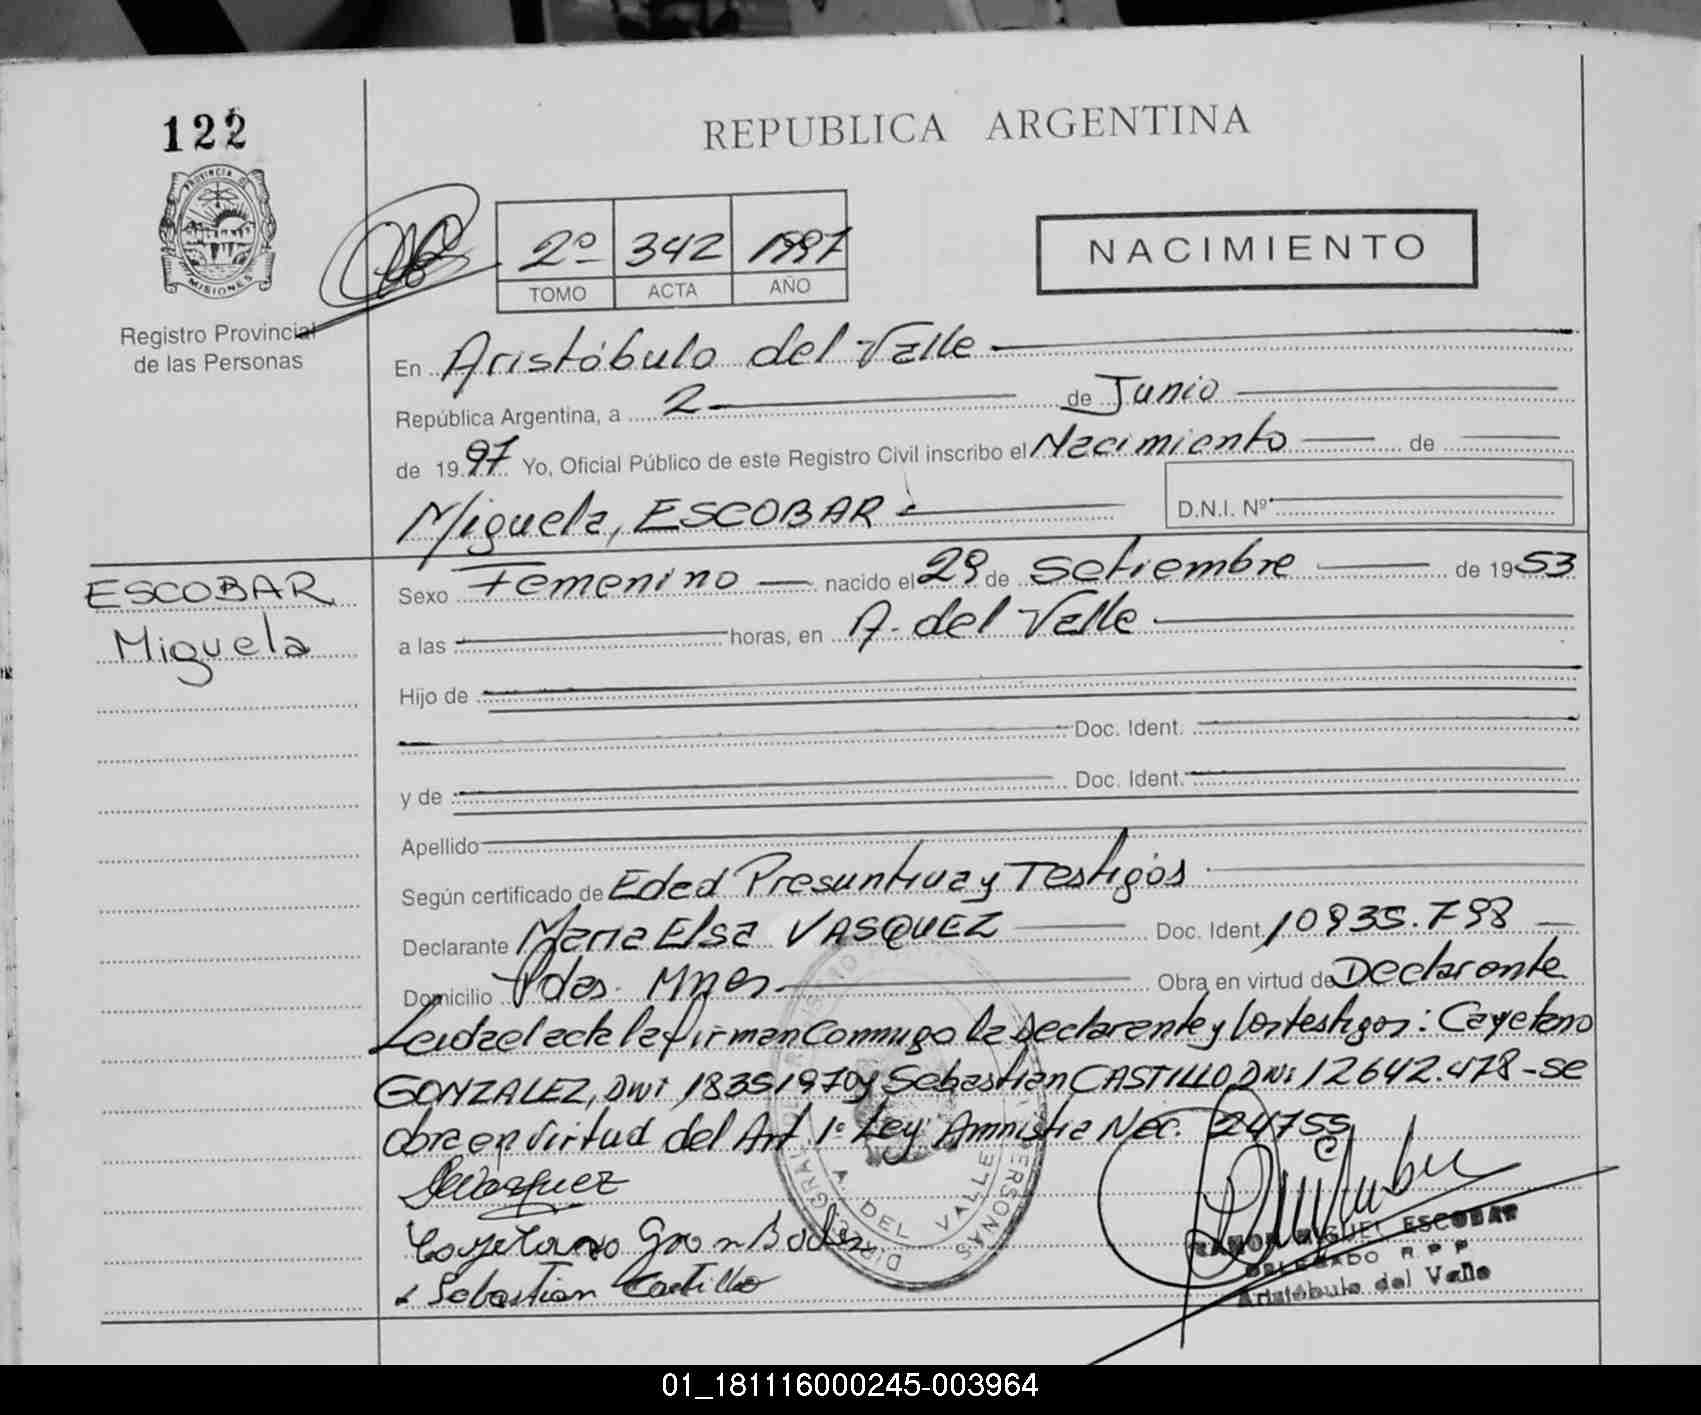 122
REPUBLICA ARGENTINA
PROVINCIA DE MISIONES
Registro Provincial
de las Personas
2º 342 1997
TOMO ACTA AÑO
NACIMIENTO
En Aristóbulo del Valle
República Argentina, a 2 de Junio
de 1997 Yo, Oficial Público de este Registro Civil inscribo el Nacimiento de
Miguela, ESCOBAR D.N.I. Nº
ESCOBAR
Miguela
Sexo Femenino nacido el 29 de Setiembre de 1953
a las horas, en A. del Valle
Hijo de
Doc. Ident.
y de Doc. Ident.
Apellido
Según certificado de Edad Presuntiva y Testigos
Declarante Maria Elsa VASQUEZ Doc. Ident. 10935.798
Domicilio Pdas. Mnes. Obra en virtud de Declarante
Leida el acta la firman Conmigo la Declarante y los testigos: Cayetano
GONZALEZ, Dni 18351970 y Sebastian CASTILLO Dni 12642.478 - se
obra en virtud del Art 1º Ley Amnistia Nac. 24755
Vasquez
Cayetano
Sebastian Castillo
A. DEL VALLE
PERSONAS
RAMON MIGUEL ESCOBAR
DELEGADO R P P
Aristóbulo del Valle
01_181116000245-003964